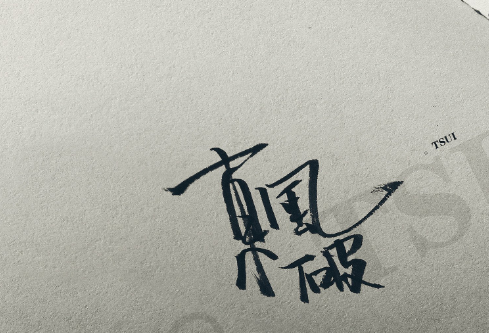 東風破
TSUI